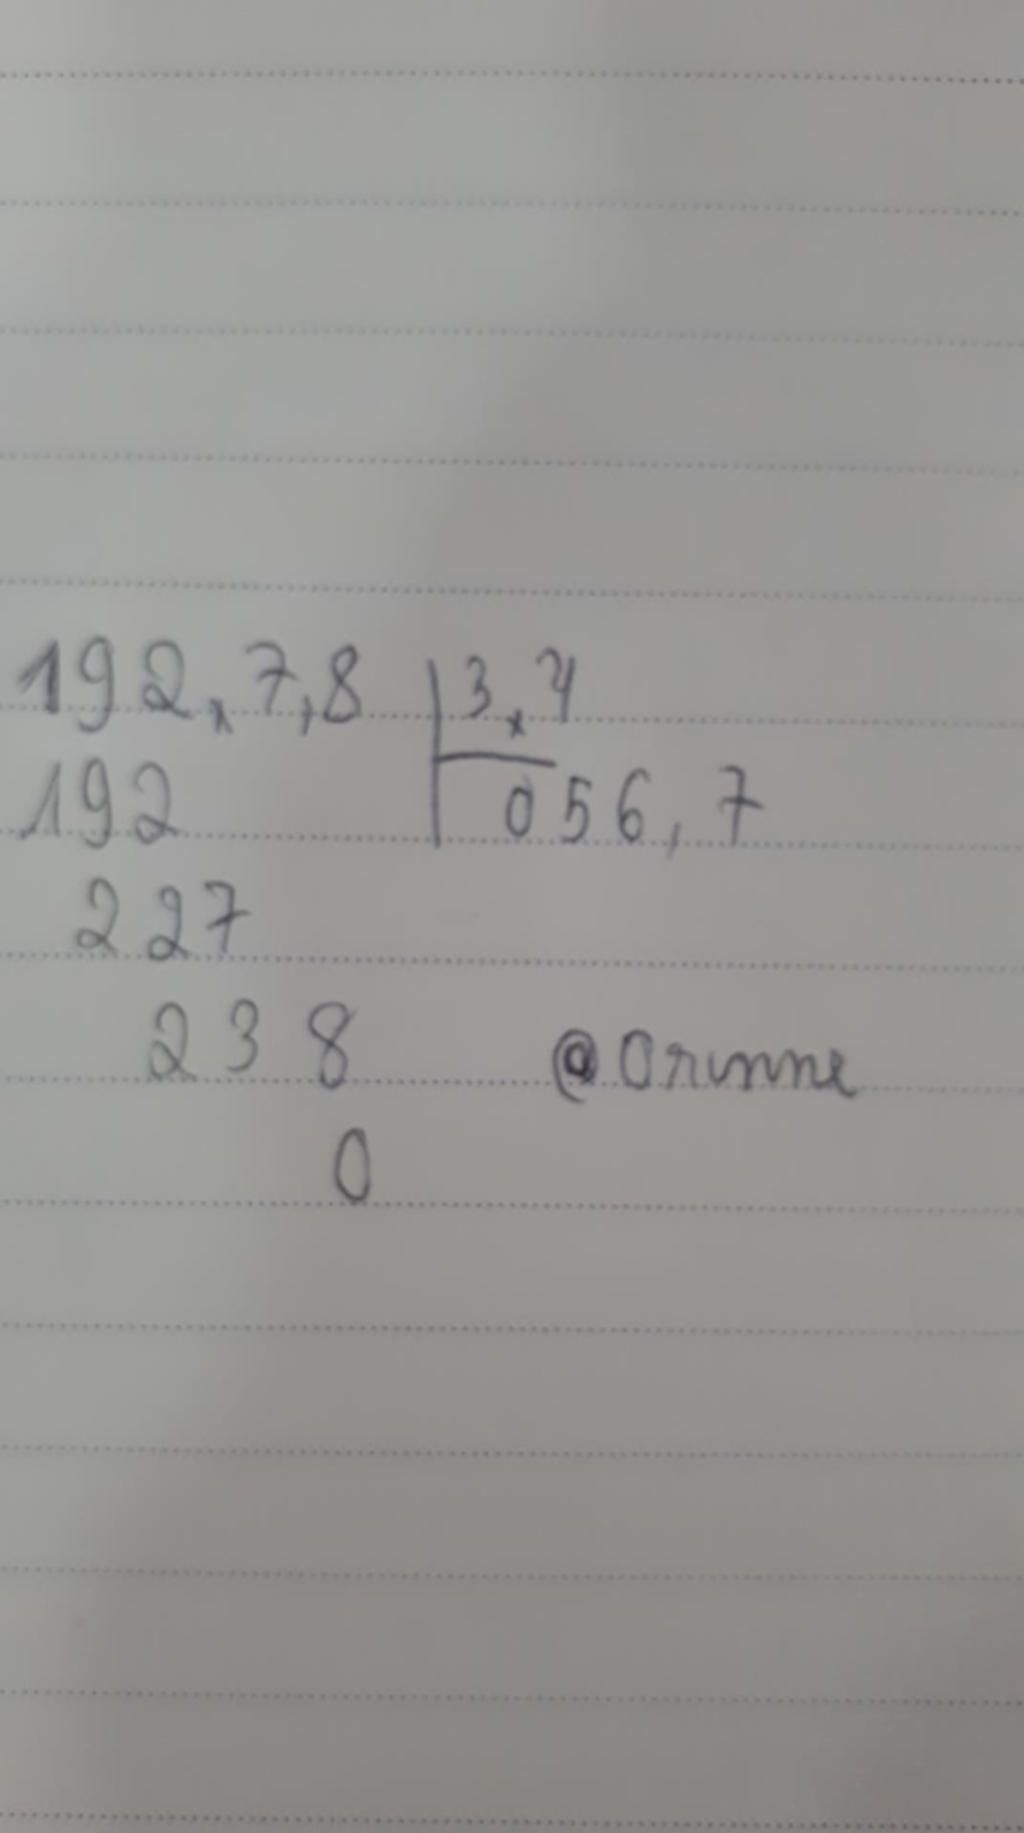 192,7,8 3,4
192 056,7
227
238 @Orinne
0